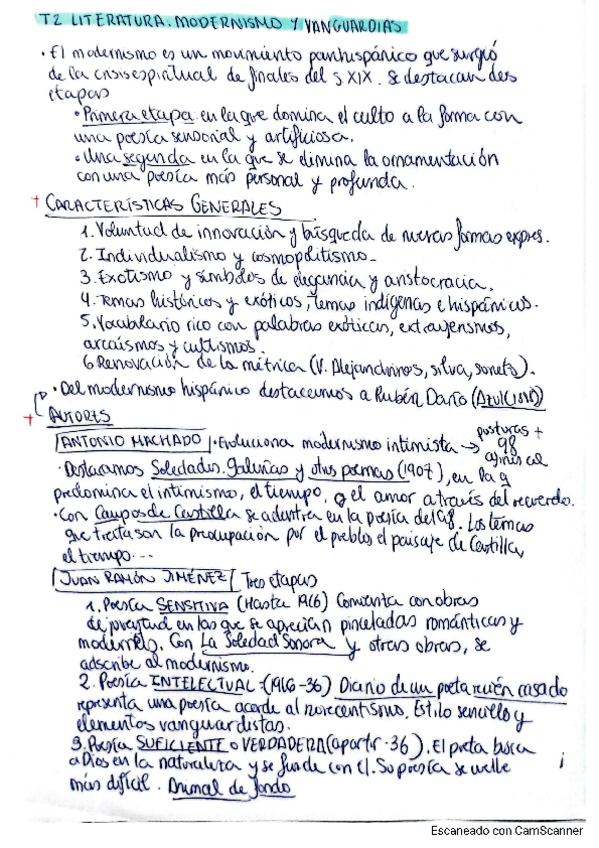 T2 LITERATURA. MODERNISMO Y VANGUARDIAS
· El modernismo es un movimiento panhispánico que surgió
de la crisis espiritual de finales del s XIX. Se destacan dos
etapas
• Primera etapa en la que domina el culto a la forma con
una poesía sensorial y artificiosa.
• Una segunda en la que se elimina la ornamentación
con una poesía más personal y profunda.
+ CARACTERÍSTICAS GENERALES
1. Voluntad de innovación y búsqueda de nuevas formas expres.
2. Individualismo y cosmopolitismo.
3. Exotismo y símbolos de elegancia y aristocracia.
4. Temas históricos y exóticos, temas indígenas e hispánicos.
5. Vocabulario rico con palabras exóticas, extranjerismos,
arcaísmos y cultismos.
6. Renovación de la métrica (V. Alejandrinos, silva, soneto).
· Del modernismo hispánico destacamos a Rubén Darío (Azul
+ AUTORES
ANTONIO MACHADO · Evoluciona modernismo intimista → posturas +
afines al 98
· Destacamos Soledades. Galerías y otros poemas (1907), en la q
predomina el intimismo, el tiempo, el amor a través del recuerdo.
· Con Campos de Castilla se adentra en la poesía del 98. Los temas
que trata son la preocupación por el pueblo, el paisaje de Castilla,
el tiempo...
JUAN RAMÓN JIMÉNEZ Tres etapas
1. Poesía SENSITIVA (Hasta 1916) Comienza con obras
de juventud en las que se aprecian pinceladas románticas y
modernistas. Con La Soledad Sonora y otras obras, se
adscribe al modernismo.
2. Poesía INTELECTUAL (1916-36) Diario de un poeta recién casado
representa una poesía acorde al novecentismo. Estilo sencillo y
elementos vanguardistas.
3. Poesía SUFICIENTE o VERDADERA (a partir 36). El poeta busca
a Dios en la naturaleza y se funde con él. Su poesía se vuelve
más difícil. Animal de fondo
Escaneado con CamScanner